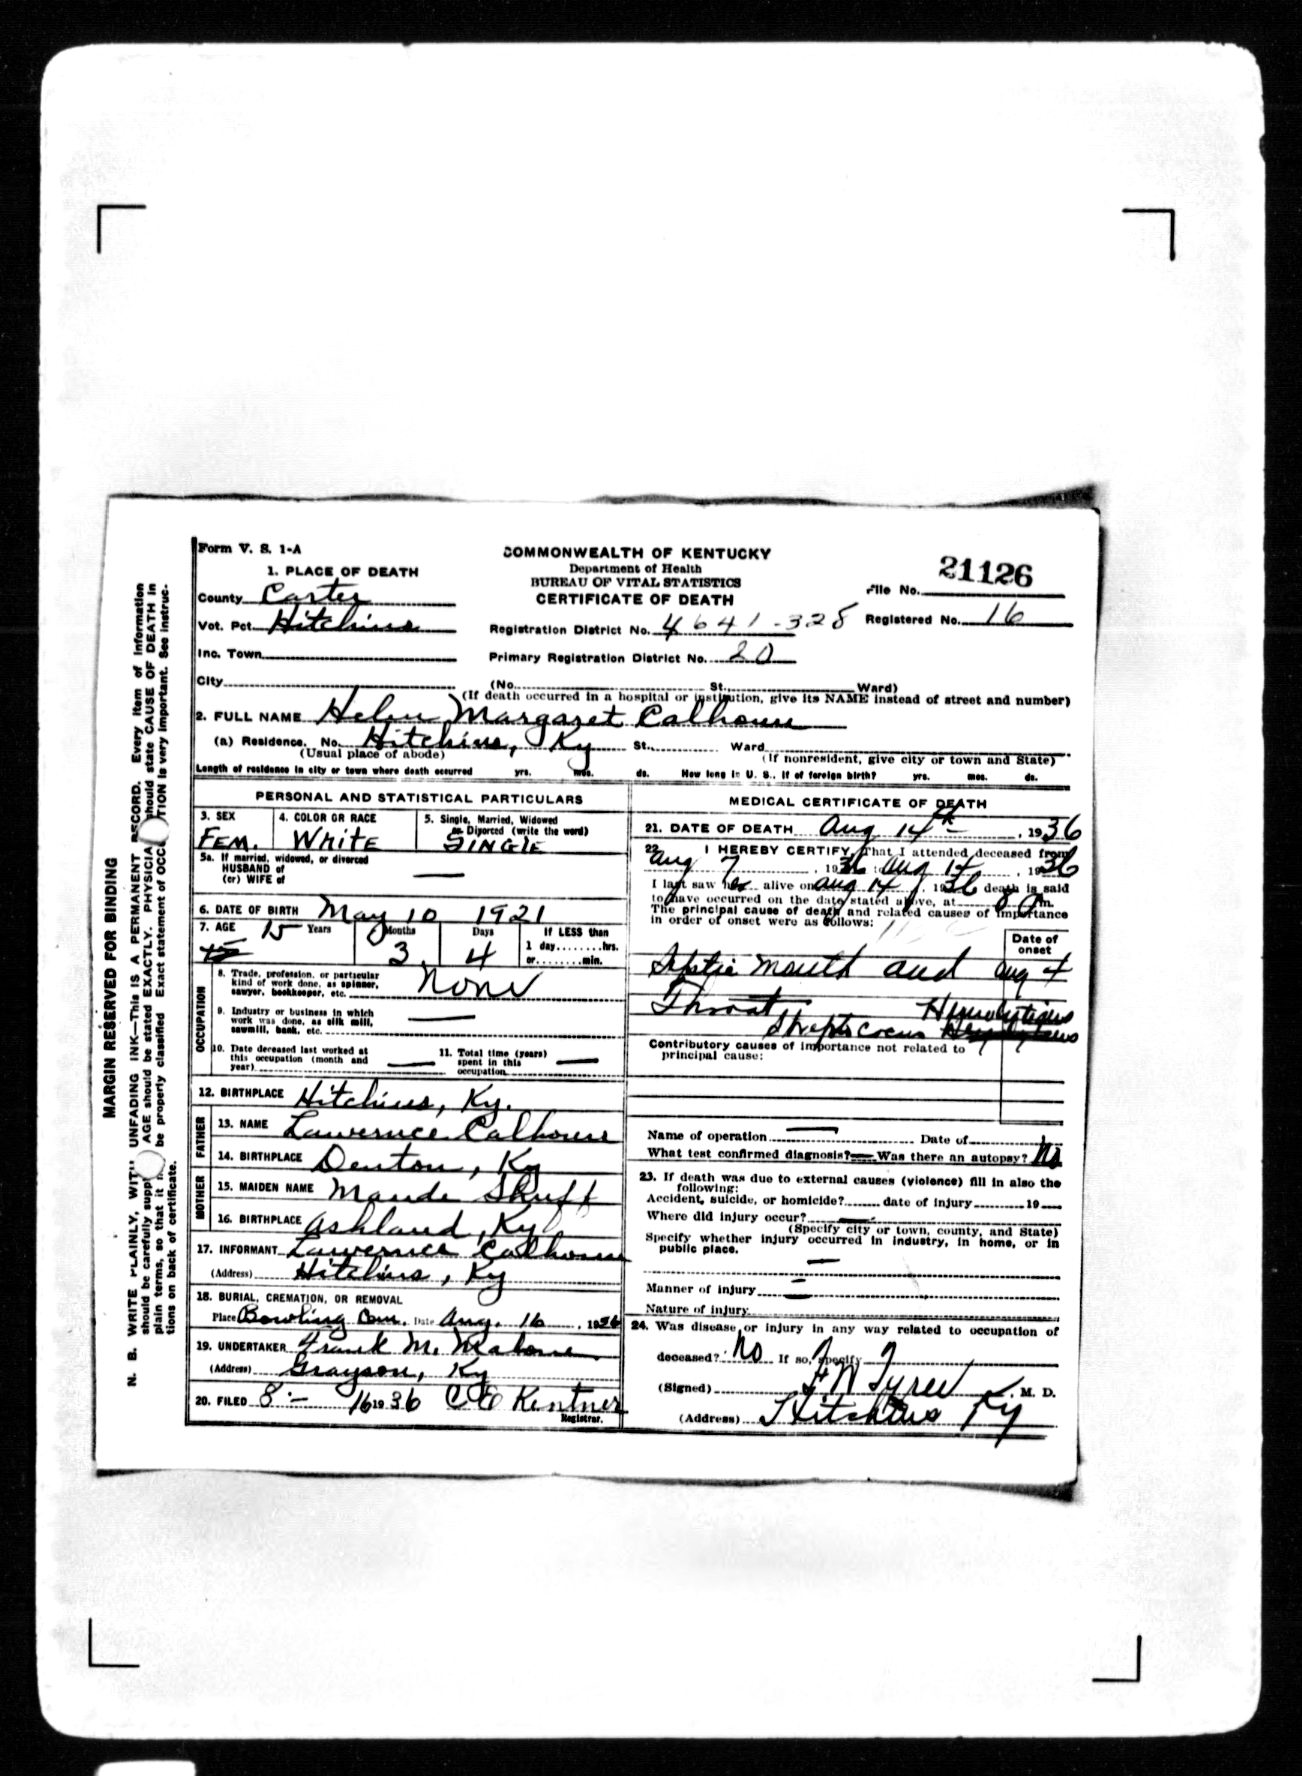 Form V. S. 1-A
COMMONWEALTH OF KENTUCKY
Department of Health
BUREAU OF VITAL STATISTICS
CERTIFICATE OF DEATH
21126
File No.
Registered No. 16
1. PLACE OF DEATH
County Carter
Vot. Pct. Hitchins
Inc. Town
City
Registration District No. 4641-328
Primary Registration District No. 20
(No. St., Ward)
(If death occurred in a hospital or institution, give its NAME instead of street and number)
2. FULL NAME Helen Margaret Calhoun
(a) Residence. No. Hitchins, Ky St., Ward
(Usual place of abode) (If nonresident, give city or town and State)
Length of residence in city or town where death occurred yrs. mos. ds. How long in U. S., if of foreign birth? yrs. mos. ds.
PERSONAL AND STATISTICAL PARTICULARS
3. SEX
FEM.
4. COLOR OR RACE
WHITE
5. Single, Married, Widowed
or Divorced (write the word)
SINGLE
5a. If married, widowed, or divorced
HUSBAND of
(or) WIFE of —
6. DATE OF BIRTH May 10 1921
7. AGE 15 Years Months Days If LESS than
15 3 4 1 day........hrs.
or........min.
OCCUPATION
8. Trade, profession, or particular
kind of work done, as spinner,
sawyer, bookkeeper, etc. None
9. Industry or business in which
work was done, as silk mill,
sawmill, bank, etc. —
10. Date deceased last worked at
this occupation (month and
year) —
11. Total time (years)
spent in this
occupation —
12. BIRTHPLACE Hitchins, Ky.
FATHER
13. NAME Lawernce Calhoun
14. BIRTHPLACE Denton, Ky
MOTHER
15. MAIDEN NAME Maude Shuff
16. BIRTHPLACE Ashland, Ky
17. INFORMANT Lawernce Calhoun
(Address) Hitchins, Ky
18. BURIAL, CREMATION, OR REMOVAL
Place Bowling Cem. Date Aug. 16, 1936
19. UNDERTAKER Frank M. Malone
(Address) Grayson, Ky
20. FILED 8-16 1936 C E Kentner
Registrar.
MEDICAL CERTIFICATE OF DEATH
21. DATE OF DEATH Aug 14th, 1936
22. I HEREBY CERTIFY, That I attended deceased from
Aug 7, 1936 Aug 14, 1936
I last saw her alive on Aug 14, 1936 death is said
to have occurred on the date stated above, at 8 m.
The principal cause of death and related causes of importance
in order of onset were as follows:
Date of
onset
Septic mouth and Aug 4
Throat Hemolyticus
Streptococcus
Contributory causes of importance not related to
principal cause:
Name of operation — Date of
What test confirmed diagnosis? — Was there an autopsy? No
23. If death was due to external causes (violence) fill in also the
following:
Accident, suicide, or homicide? date of injury 19—
Where did injury occur? —
(Specify city or town, county, and State)
Specify whether injury occurred in industry, in home, or in
public place.
—
Manner of injury —
Nature of injury
24. Was disease or injury in any way related to occupation of
deceased? No If so, specify
(Signed) F W Tyree, M. D.
(Address) Hitchins Ky
MARGIN RESERVED FOR BINDING
N. B. WRITE PLAINLY, WITH UNFADING INK—This IS A PERMANENT RECORD. Every item of information
should be carefully supp AGE should be stated EXACTLY. PHYSICIA should state CAUSE OF DEATH in
plain terms, so that it m be properly classified Exact statement of OCC TION is very important. See instruc-
tions on back of certificate.